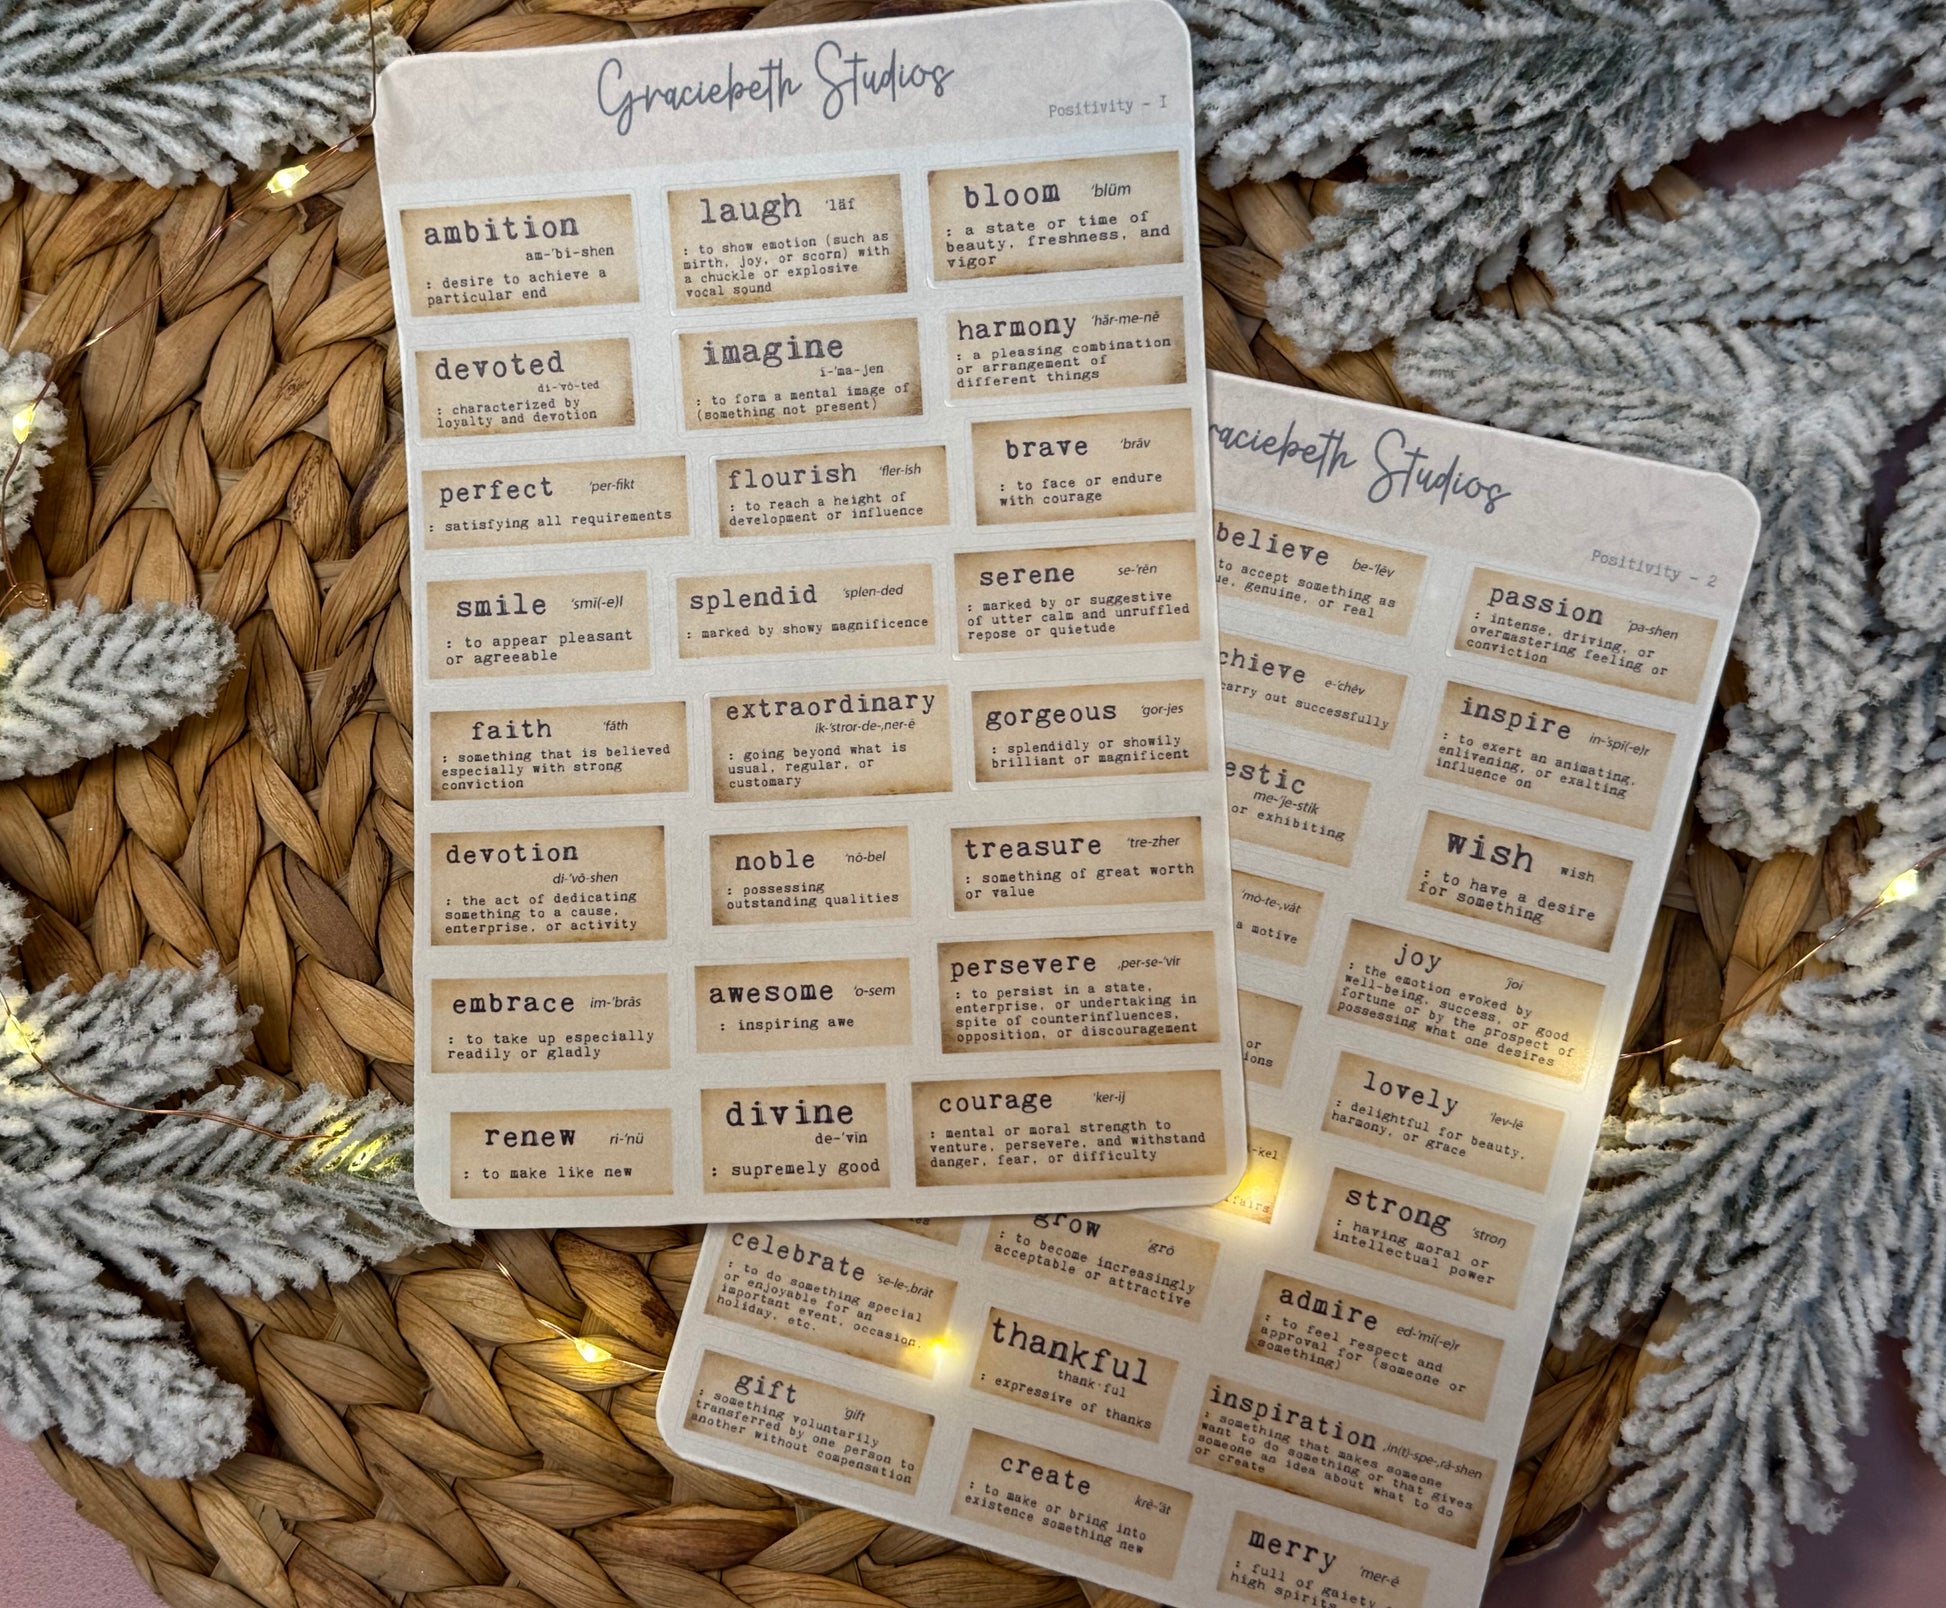 Graciebeth Studios
Positivity - 1
ambition
am-'bi-shen
: desire to achieve a
particular end
laugh 'läf
: to show emotion (such as
mirth, joy, or scorn) with
a chuckle or explosive
vocal sound
bloom 'blüm
: a state or time of
beauty, freshness, and
vigor
devoted
di-'vō-ted
: characterized by
loyalty and devotion
imagine
i-'ma-jen
: to form a mental image of
(something not present)
harmony 'här-me-nē
: a pleasing combination
or arrangement of
different things
perfect 'per-fikt
: satisfying all requirements
flourish 'fler-ish
: to reach a height of
development or influence
brave 'brāv
: to face or endure
with courage
smile 'smī(-e)l
: to appear pleasant
or agreeable
splendid 'splen-ded
: marked by showy magnificence
serene se-'rēn
: marked by or suggestive
of utter calm and unruffled
repose or quietude
faith 'fāth
: something that is believed
especially with strong
conviction
extraordinary
ik-'stror-de-,ner-ē
: going beyond what is
usual, regular, or
customary
gorgeous 'gor-jes
: splendidly or showily
brilliant or magnificent
devotion
di-'vō-shen
: the act of dedicating
something to a cause,
enterprise, or activity
noble 'nō-bel
: possessing
outstanding qualities
treasure 'tre-zher
: something of great worth
or value
embrace im-'brās
: to take up especially
readily or gladly
awesome 'o-sem
: inspiring awe
persevere ,per-se-'vir
: to persist in a state,
enterprise, or undertaking in
spite of counterinfluences,
opposition, or discouragement
renew ri-'nü
: to make like new
divine
de-'vīn
: supremely good
courage 'ker-ij
: mental or moral strength to
venture, persevere, and withstand
danger, fear, or difficulty
raciebeth Studios
Positivity - 2
believe be-'lēv
to accept something as
ue, genuine, or real
passion 'pa-shen
: intense, driving, or
overmastering feeling or
conviction
chieve e-'chēv
carry out successfully
inspire in-'spī(-e)r
: to exert an animating,
enlivening, or exalting
influence on
estic
me-'je-stik
or exhibiting
wish wish
: to have a desire
for something
'mō-te-,vāt
a motive
joy 'joi
: the emotion evoked by
well-being, success, or good
fortune or by the prospect of
possessing what one desires
or
ions
lovely 'lev-lē
: delightful for beauty,
harmony, or grace
-kel
ffairs
strong 'stroŋ
: having moral or
intellectual power
grow 'grō
: to become increasingly
acceptable or attractive
celebrate 'se-le-,brāt
: to do something special
or enjoyable for an
important event, occasion,
holiday, etc.
admire ed-'mī(-e)r
: to feel respect and
approval for (someone or
something)
thankful
thank·ful
: expressive of thanks
gift 'gift
: something voluntarily
transferred by one person to
another without compensation
inspiration ,in(t)-spe-,rā-shen
: something that makes someone
want to do something or that gives
someone an idea about what to do
or create
create krē-'āt
: to make or bring into
existence something new
merry 'mer-ē
: full of gaiety
high spirits